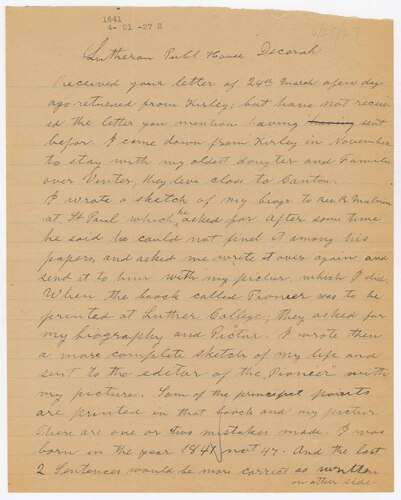 1641
4- 21 -27 R
4/25/27
Lutheran Publ House Decorah
Received your letter of 24th March a few day
ago returned from Kirley; but have not receiv
ed the letter you mention having having sent
befor. I came down from Kirley in November
to stay with my oldest dougter and Familie
over Vinter, they leve close to Canton.
I wrote a sketch of my biogr to Rev R Malmin
at St Paul which he asked for After som time
he said he could not find it among his
papers, and asked me write it over again and
send it to him with my pictur, which I did.
When the boock called Pioneer was to be
printed at Luther College; they asked for
my biography and Pictur. I wrote then
a more complete sketch of my life and
sent to the editor of the "Pioneer" with
my picture. Som of the principel points
are printed in that boock and my pictur
There are one or two mistakes made. I was
born in the year 1841 not 47. And the last
2 Sentences would be more correct as written
on other side